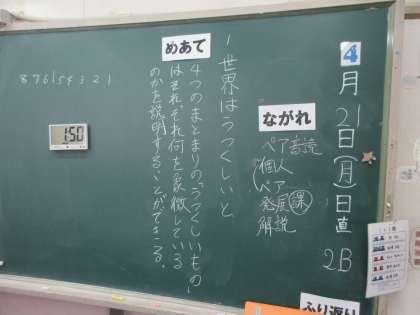 4月21日(月)日直
2B
ながれ
ペア音読
個人
ペア
発展課
解説
1 世界はうつくしいと
めあて
4つのまとまりの「うつくしいもの」
はそれぞれ何を象徴している
のかを説明することができる。
8 7 6 1 5 4 3 2 1
1:50
ふり返り